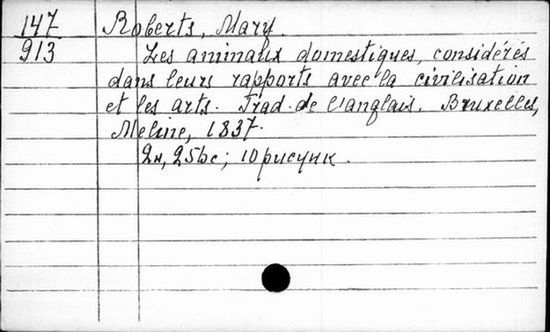 147
913
Roberts, Mary.
Les animaux domestiques, considérés
dans leurs rapports avec la civilisation
et les arts. Trad. de l'anglais. Bruxelles,
Meline, 1837.
2н, 251с; 10 рисунк.